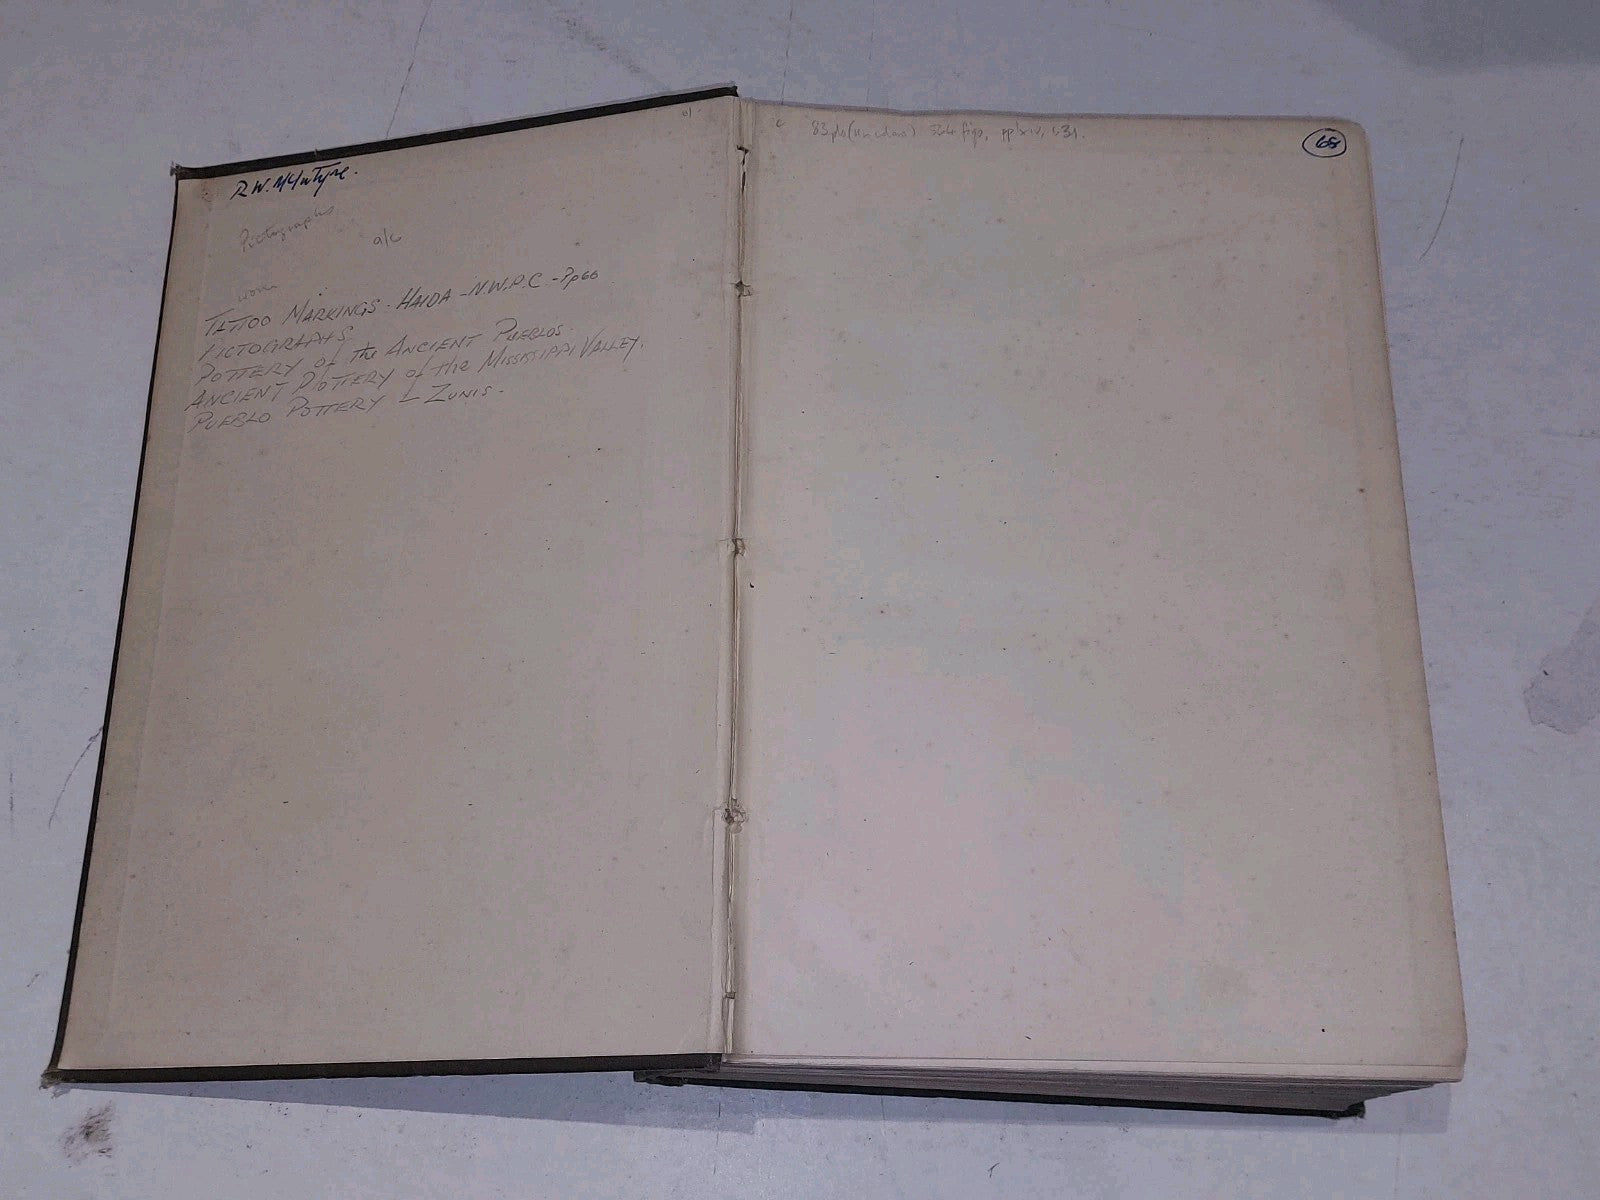 R.W. McIntyre.
Pictographs
a/c
TATTOO MARKINGS - HAIDA - N.W.P.C. - Pp60
PICTOGRAPHS
POTTERY of the ANCIENT PUEBLOS.
ANCIENT POTTERY of the MISSISSIPPI VALLEY.
PUEBLO POTTERY - ZUNIS.
83 pls 564 figs, pp lxiv, 531.
68